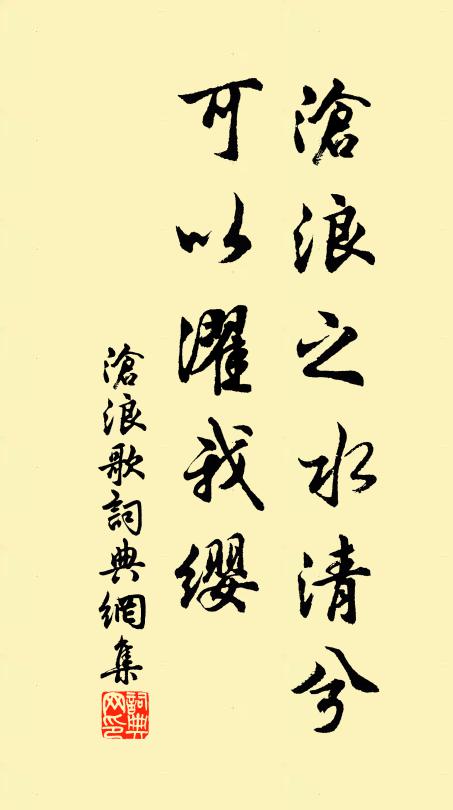 滄浪之水清兮
可以濯我纓
滄浪歌詞典網集
詞典
网印